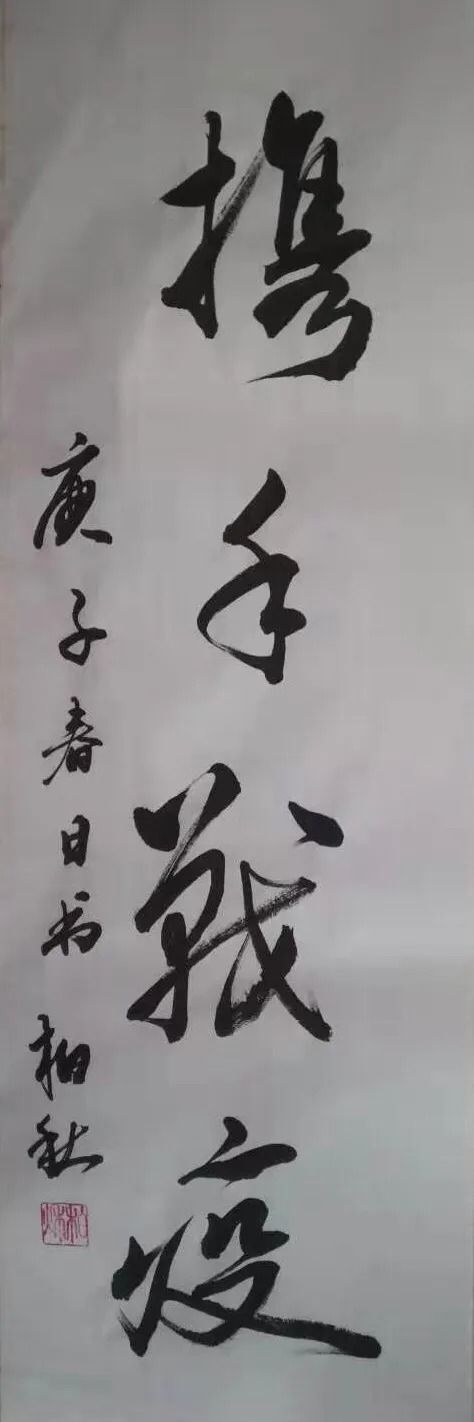 携手战疫
庚子春日书 柏秋